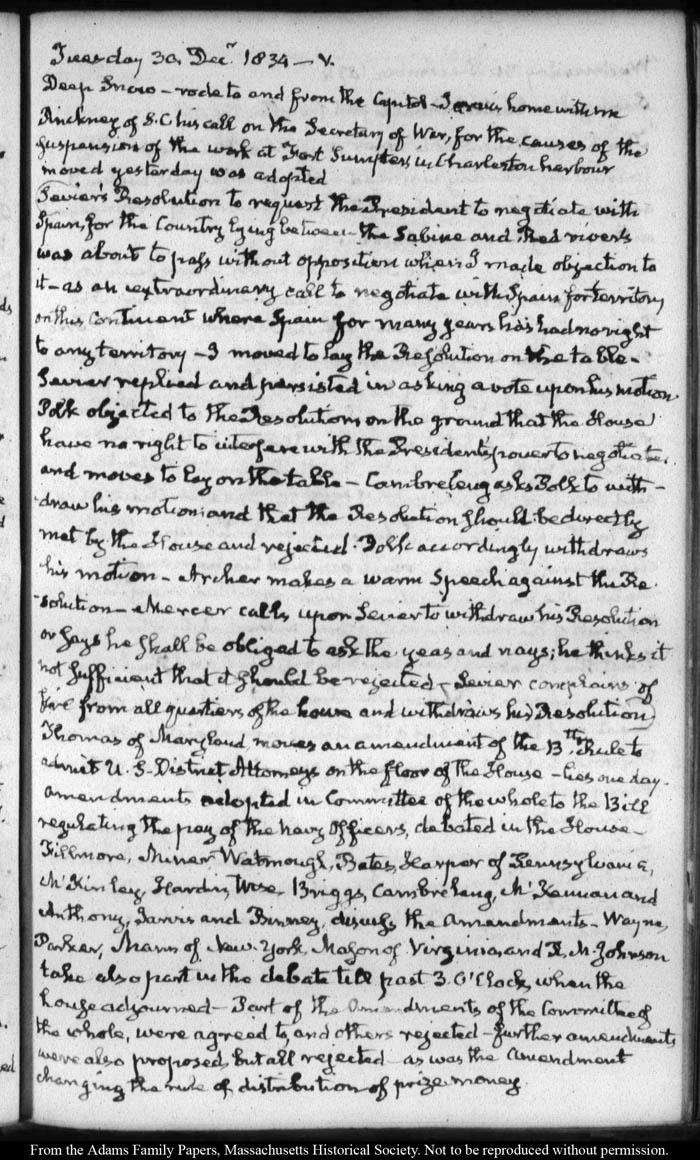 Tuesday 30. Decr. 1834 — V.
Deep Snow — rode to and from the Capitol — Jarvis home with me
Pinckney of S.C. his call on the Secretary of War, for the causes of the
suspension of the work at Fort Sumpter, in Charleston harbour
moved yesterday was adopted
Sevier's Resolution to request the President to negotiate with
Spain, for the Country lying between the Sabine and Red rivers
was about to pass without opposition when I made objection to
it — as an extraordinary call to negotiate with Spain for territory
on this Continent where Spain for many years has had no right
to any territory — I moved to lay the Resolution on the table —
Sevier replied and persisted in asking a vote upon his motion.
Polk objected to the Resolution, on the ground that the House
have no right to interfere with the President's power to negotiate,
and moves to lay on the table — Cambreleng asks Polk to with-
draw his motion; and that the Resolution should be directly
met by the House and rejected. Polk accordingly withdraws
his motion — Archer makes a warm Speech against the Re-
solution — Mercer calls upon Sevier to withdraw his Resolution
or says he shall be obliged to ask the yeas and nays; he thinks it
not sufficient that it should be rejected — Sevier complains of
fire from all quarters of the house and withdraws his Resolution)
Thomas of Maryland, moves an amendment of the 13th. Rule to
admit U.S. District Attorneys on the floor of the House — lies one day.
Amendments adopted in Committee of the whole to the Bill
regulating the pay of the Navy Officers, debated in the House —
Fillmore, Miner Watmough, Bates, Harper of Pennsylvania,
McKinley, Hardin, Wise, Briggs, Cambreleng, McKennan and
Anthony, Jarvis and Binney, discuss the Amendments — Wayne,
Parker, Mann of New-York, Mason of Virginia, and R. M. Johnson
take also part in the debate till past 3. O'Clock, when the
house adjourned — Part of the Amendments of the Committee of
the whole, were agreed to, and others rejected — further amendments
were also proposed, but all rejected — as was the Amendment
changing the rule of distribution of prize money.
From the Adams Family Papers, Massachusetts Historical Society. Not to be reproduced without permission.